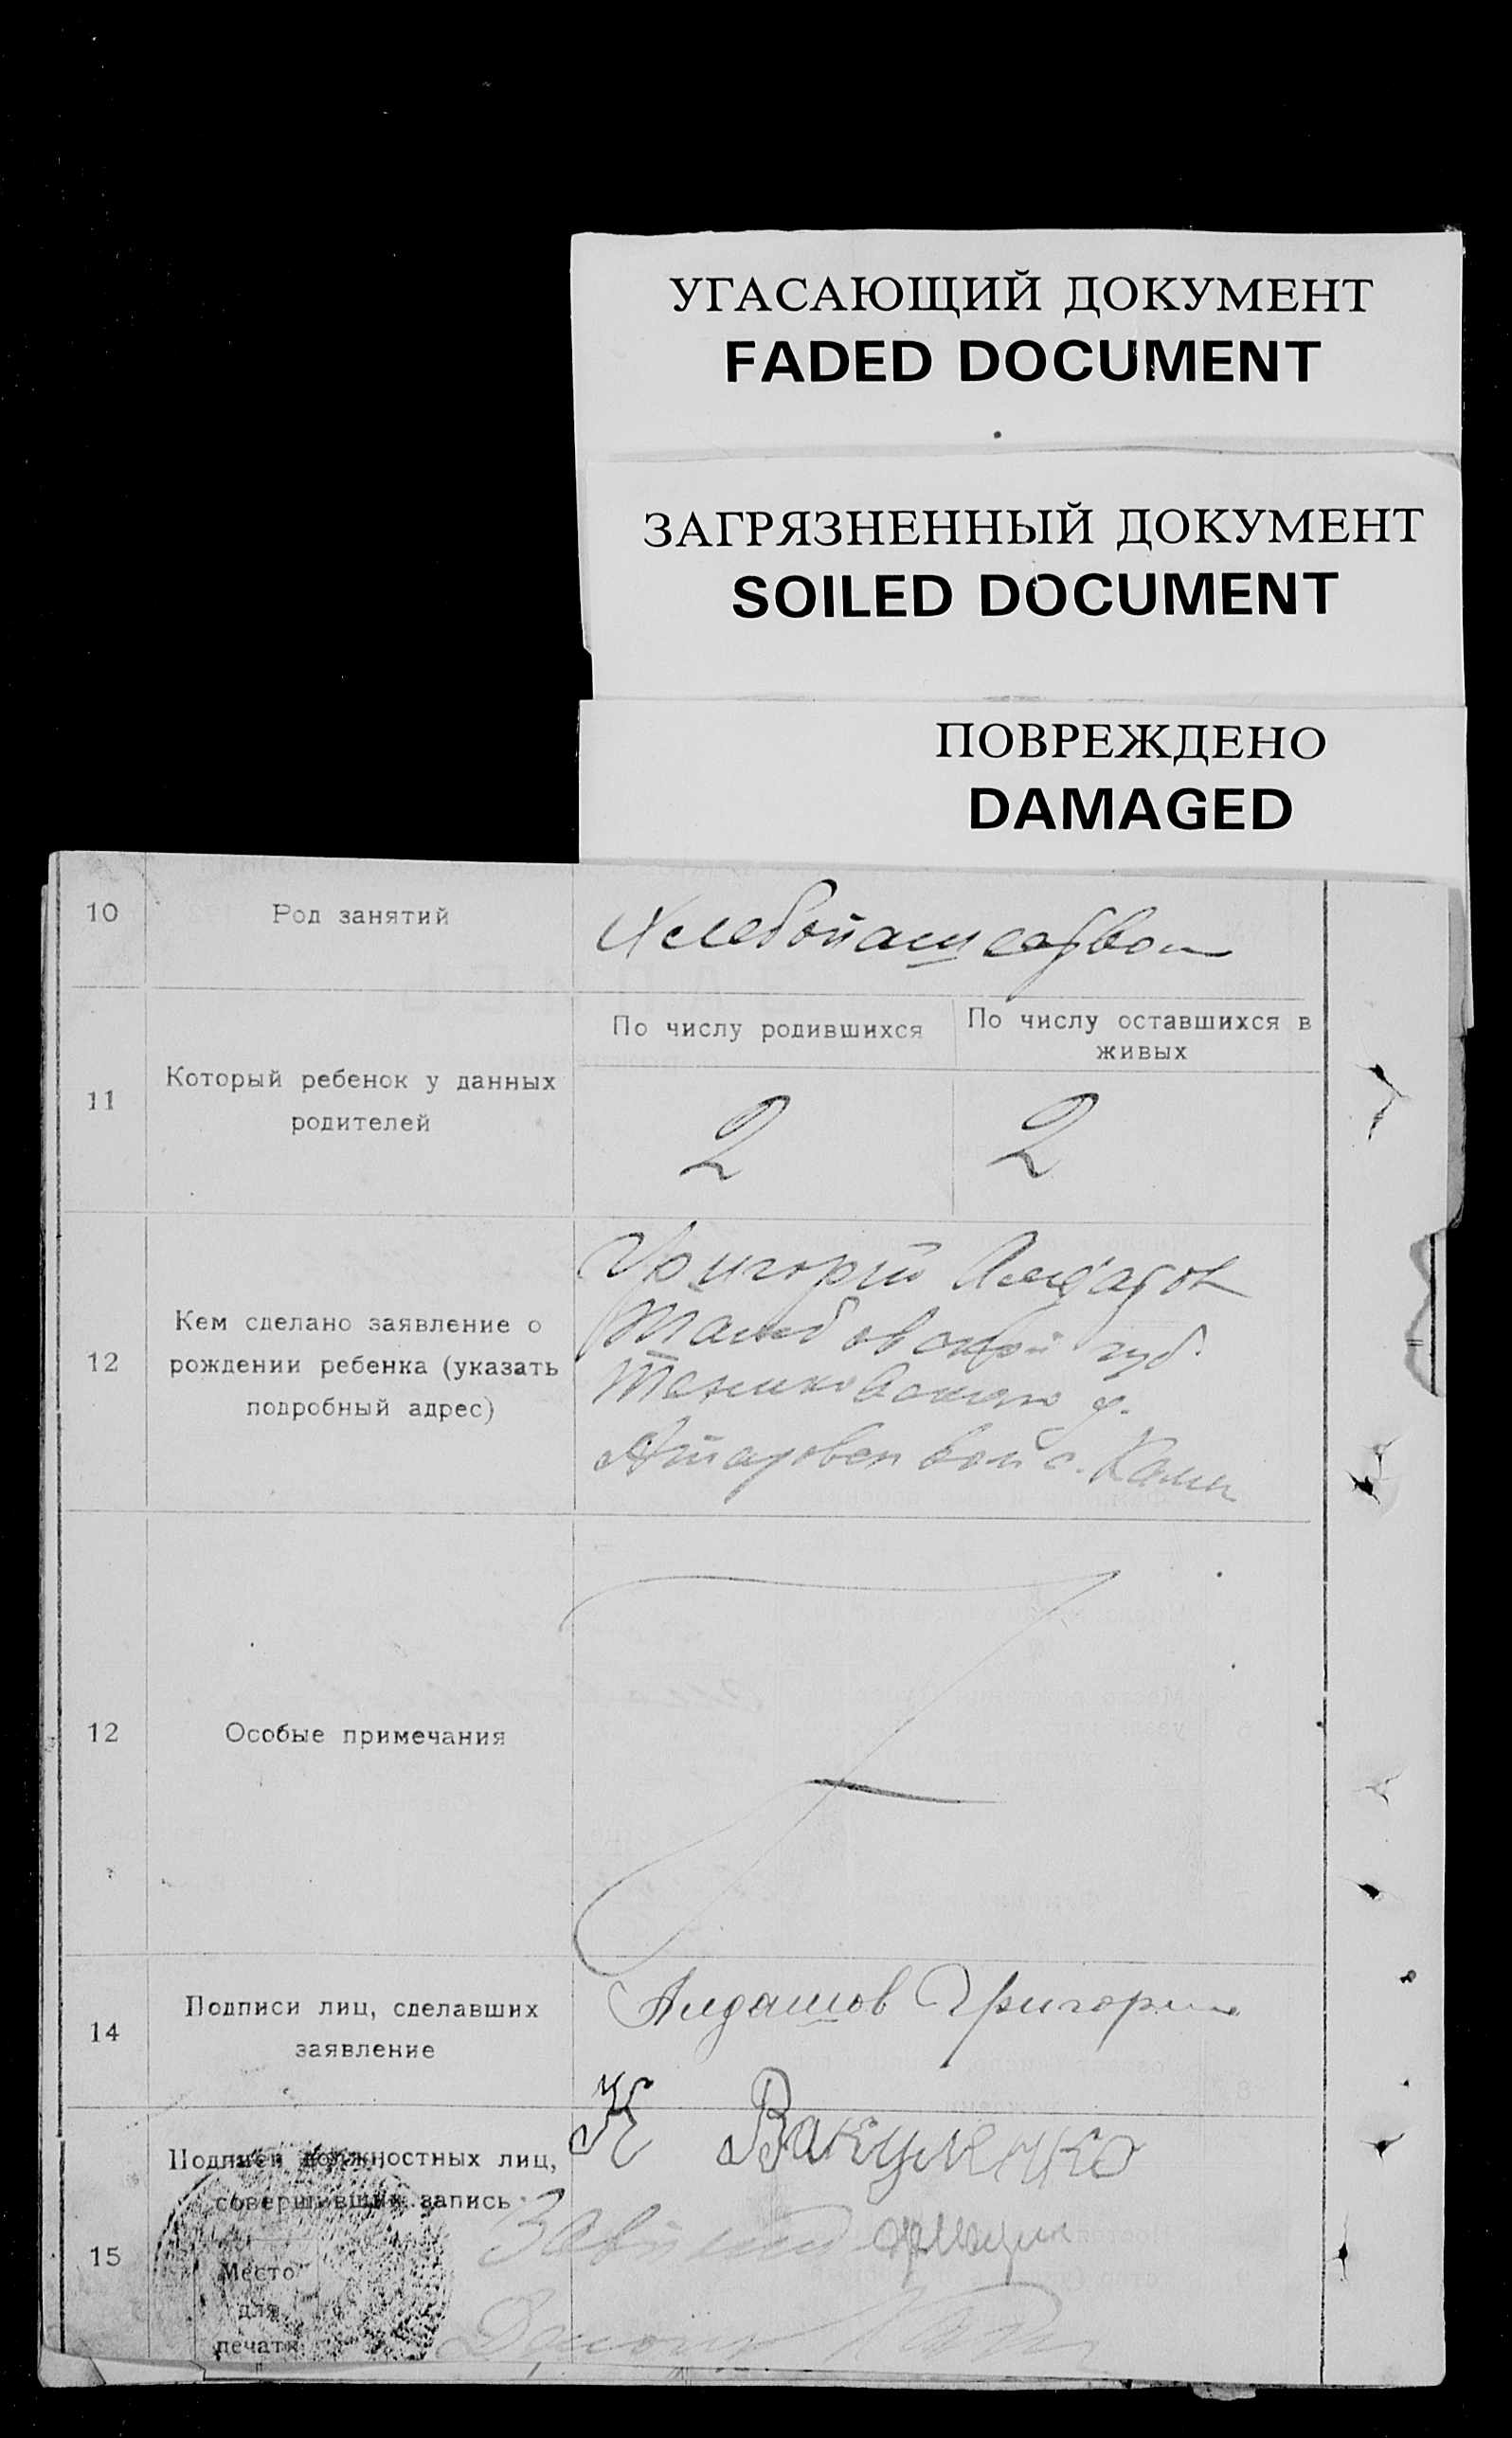 УГАСАЮЩИЙ ДОКУМЕНТ
FADED DOCUMENT
ЗАГРЯЗНЕННЫЙ ДОКУМЕНТ
SOILED DOCUMENT
ПОВРЕЖДЕНО
DAMAGED
10
Род занятий
Хлебопашество
11
Который ребенок у данных
родителей
По числу родившихся
2
По числу оставшихся в
живых
2
12
Кем сделано заявление о
рождении ребенка (указать
подробный адрес)
Григорий
Тамбовской губ.
у.
с.
12
Особые примечания
14
Подписи лиц, сделавших
заявление
Алдашов Григорий
К Вакуленко
15
Подписи должностных лиц,
совершивших запись
Место
для
печати